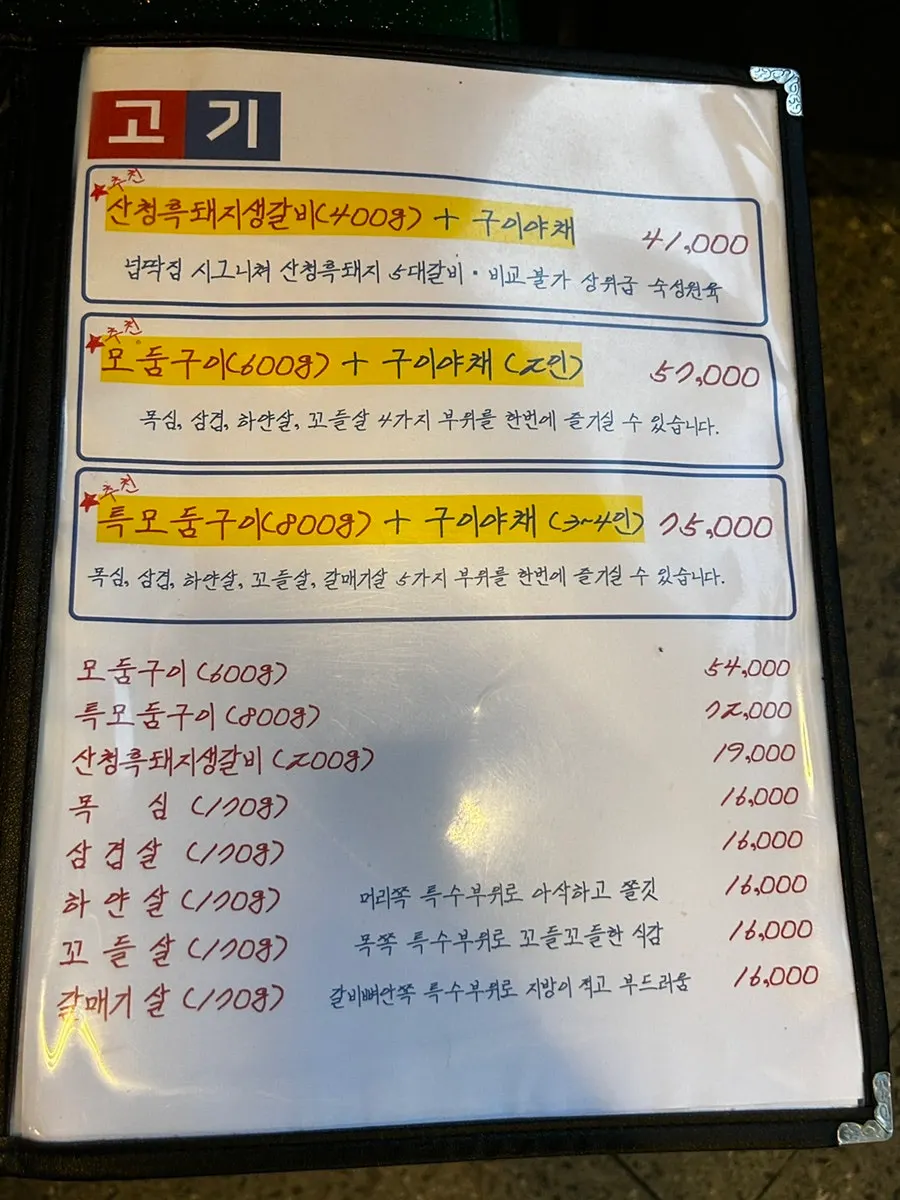 고기
추천
산청흑돼지생갈비(400g) + 구이야채 41,000
넙딱집 시그니쳐 산청흑돼지 5대갈비 · 비교불가 상위급 숙성원육
추천
모둠구이(600g) + 구이야채 (2인) 57,000
목심, 삼겹, 하얀살, 꼬들살 4가지 부위를 한번에 즐기실 수 있습니다.
추천
특모둠구이(800g) + 구이야채 (3~4인) 75,000
목심, 삼겹, 하얀살, 꼬들살, 갈매기살 5가지 부위를 한번에 즐기실 수 있습니다.
모둠구이 (600g) 54,000
특모둠구이 (800g) 72,000
산청흑돼지생갈비 (200g) 19,000
목 심 (170g) 16,000
삼겹살 (170g) 16,000
하얀살 (170g) 머리쪽 특수부위로 아삭하고 쫄깃 16,000
꼬들살 (170g) 목쪽 특수부위로 꼬들꼬들한 식감 16,000
갈매기살 (170g) 갈비뼈안쪽 특수부위로 지방이 적고 부드러움 16,000